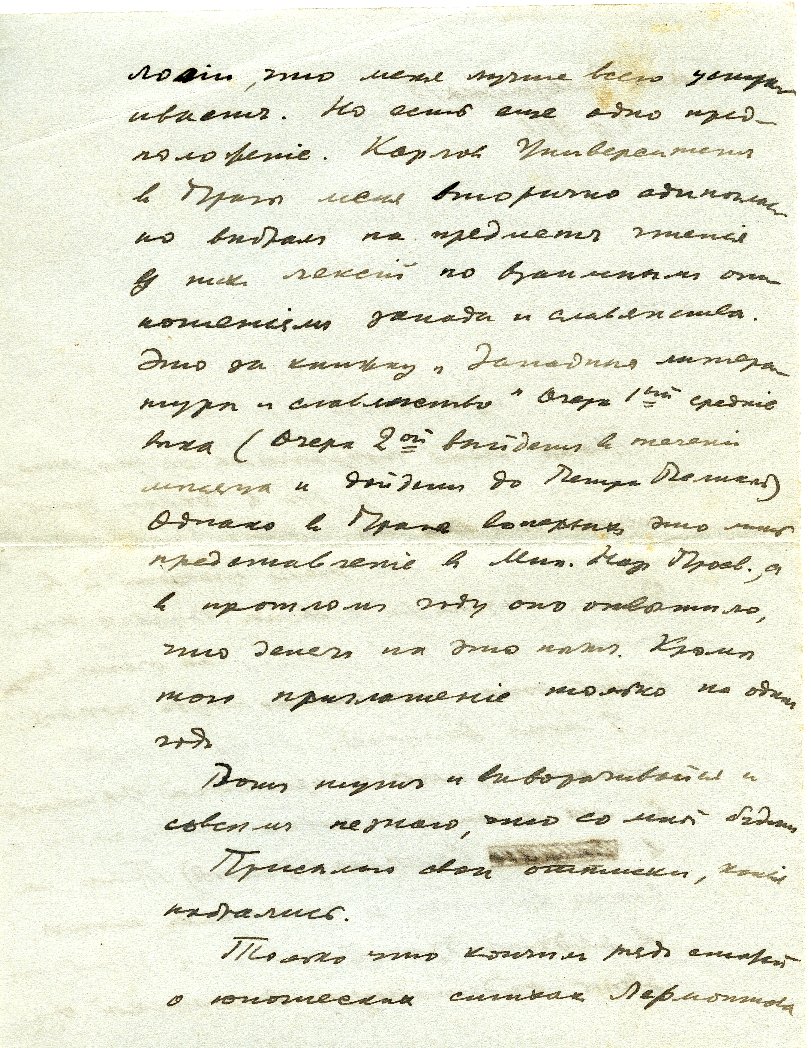 логіи, что меня лучше всего устраи-
иваетъ. Но есть еще одно пред-
положеніе. Карлов Университетъ
в Прагѣ меня вторично единоглас-
но выбралъ на предметъ чтенія
лексій по взаимнымъ от-
ношеніямъ запада и славянства.
Это за книжку „Западныя литера-
туры и славянство" Очерк 1ый средніе
вѣка (Очерк 2ой выйдетъ в теченіи
мѣсяца и дойдетъ до Петра Великаго)
Однако в Прагѣ это мнѣ
представленіе в Мин. Нар Просв., а
в прошломъ году оно отвѣтило,
что денегъ на это нѣтъ. Кромѣ
того приглашеніе только на одинъ
годъ
Вотъ тутъ и выворачивайся и
совсѣмъ незнаю, что со мной будетъ
Присылаю свои оттиски, какіе
набрались.
Только что кончилъ рядъ статей
о юношескихъ стихахъ Лермонтова